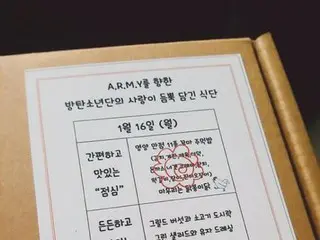 A.R.M.Y를 향한
방탄소년단의 사랑이 듬뿍 담긴 식단
1월 16일 (월)
간편하고
맛있는
"점심"
영양 만점 11종 꼬마 주먹밥
든든하고
그릴드 버섯과 소고기 도시락
그린 샐러드와 유자 드레싱